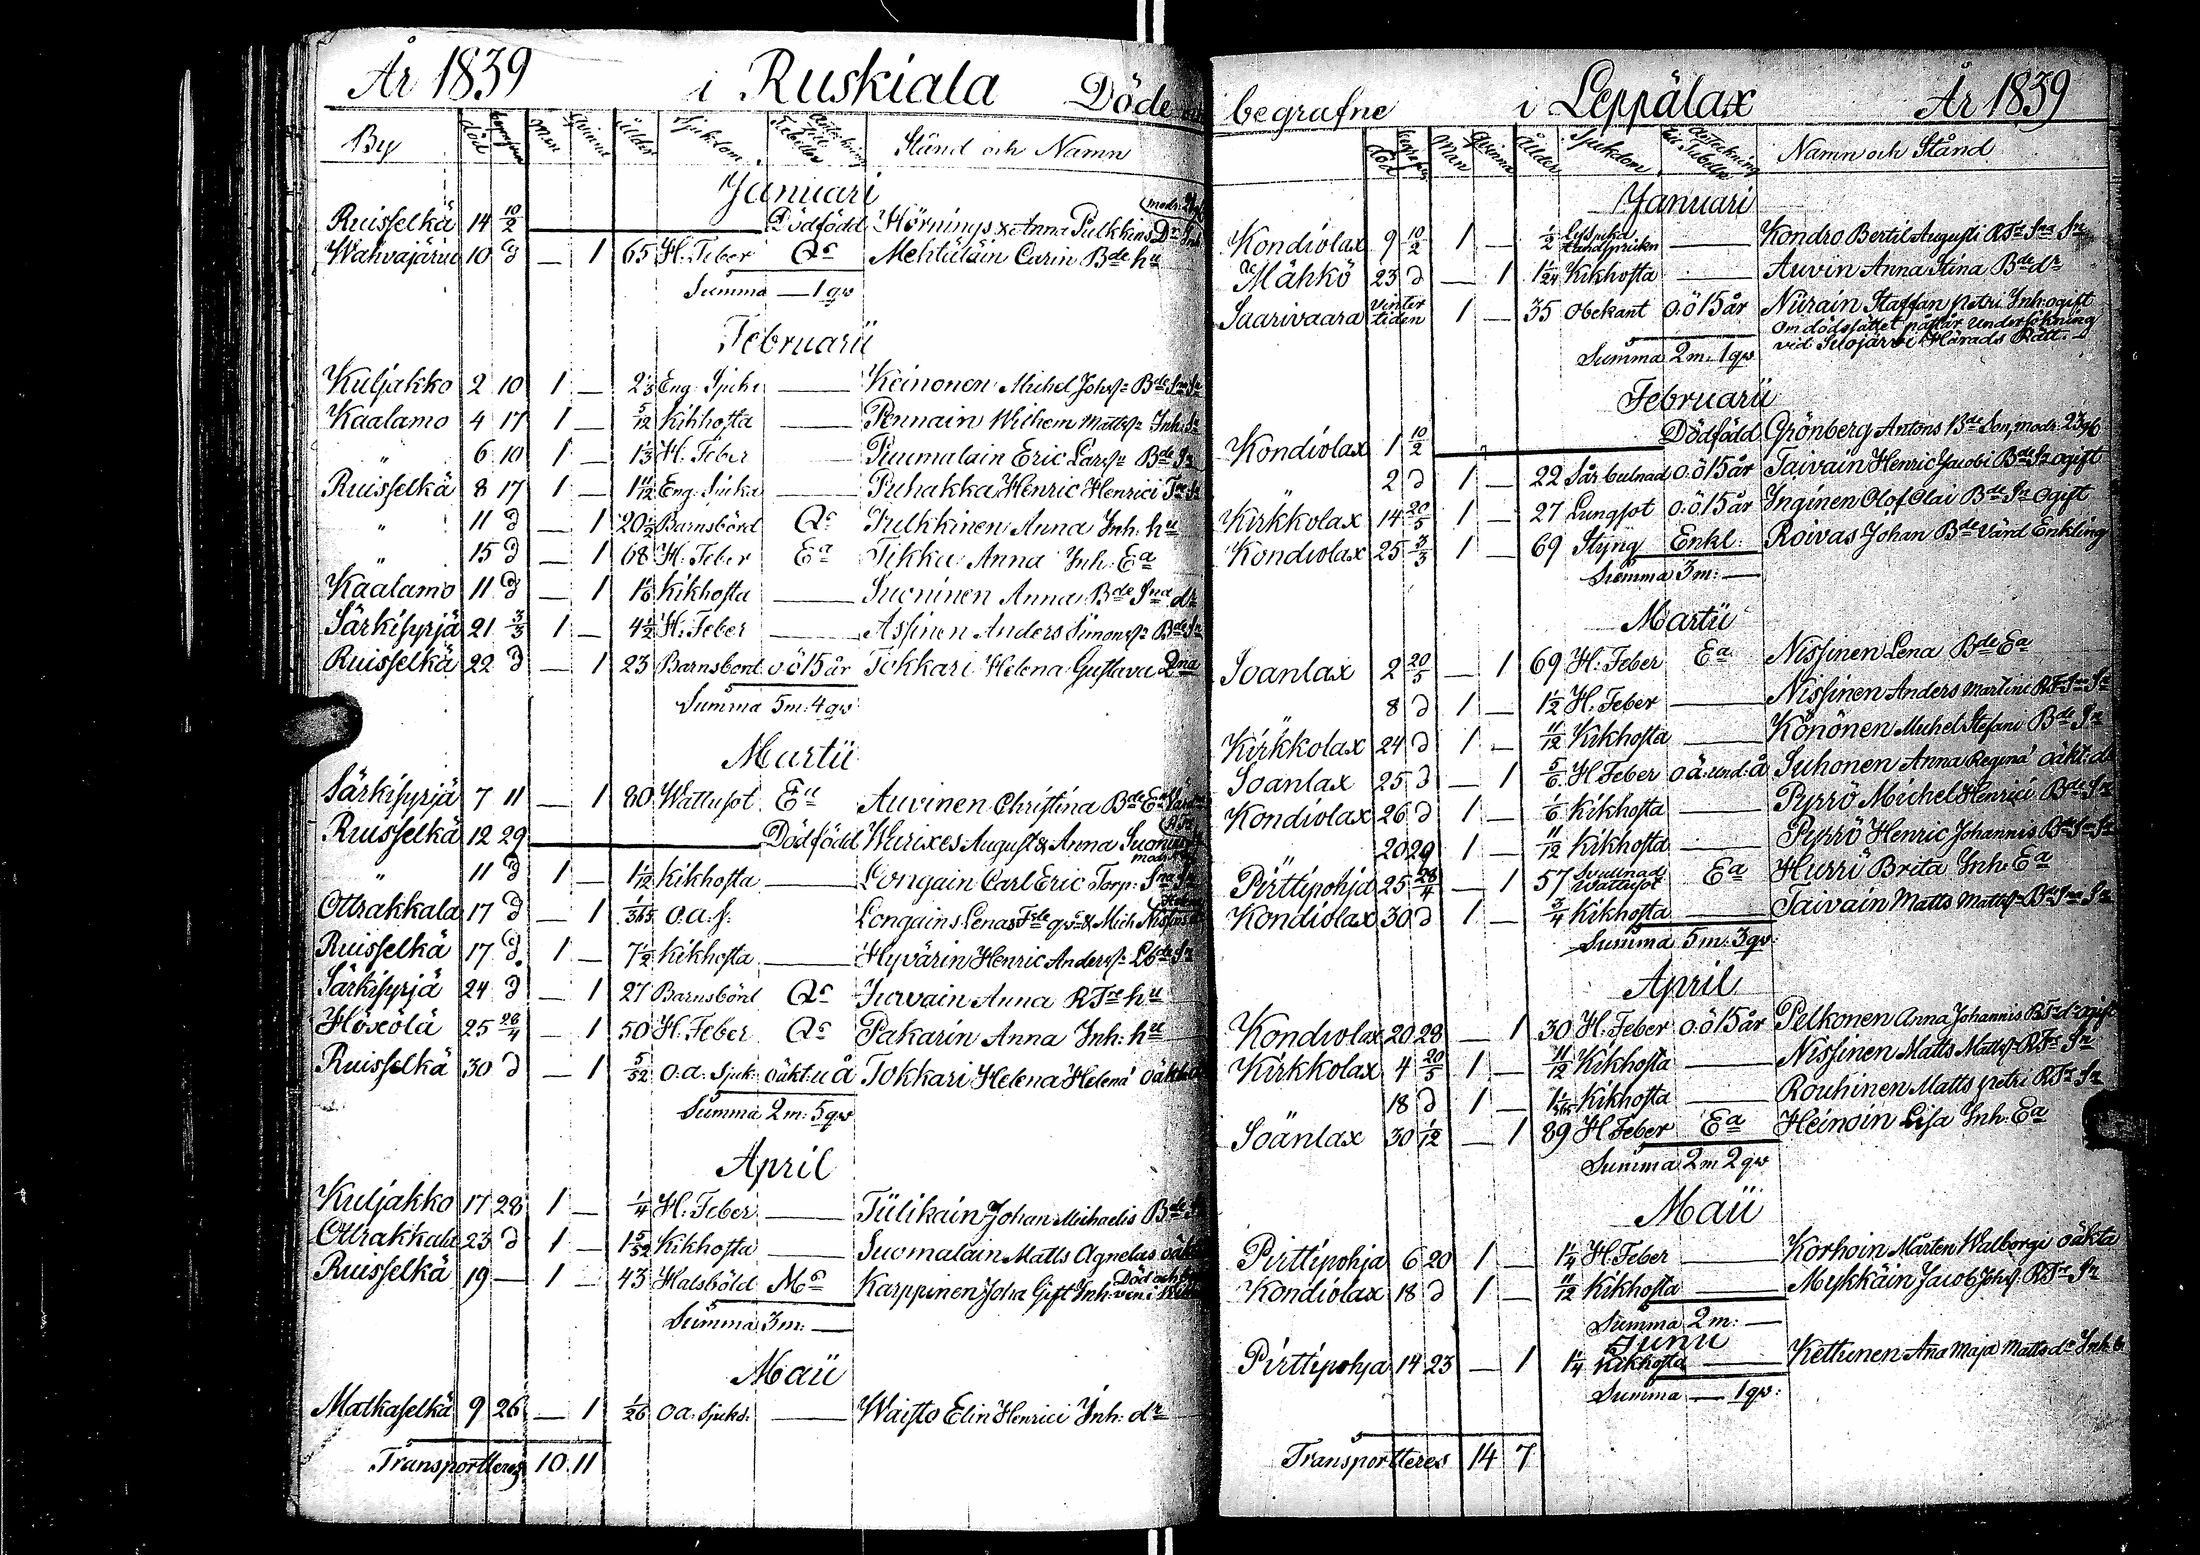 År 1839 i Ruskiala Döde
By död begrafne Män Qvinnor Ålder Sjukdom Anteckning till Tabellen Stånd och Namn
Januari
Ruisselkä 14 10/2 Dödfödd Hörnings Anna Pulkkins
Wahvajärvi 10 d — 1 65 H. Feber Qs Mehtäläin Carin Bde hu
Summa — 1 qv
Februarii
Kuljakko 2 10 1 — 2 1/3 Eng. Sjuka — Keinonen Michel Johss Bde Sna Sn
Kaalamo 4 17 1 — 5/12 Kikhosta — Pennain Wilhem Mattss Inh: Sn
" 6 10 1 — 1 1/3 H. Feber — Ruumalain Eric Larss Bde Sn
Ruisselkä 8 17 1 — 1 11/12 Eng. Sjuka — Puhakka Henric Henrici Trs Sn
" 11 d — 1 20 1/2 Barnsbörd Qs Pulkkinen Anna Inh. hu
" 15 d — 1 68 H. Feber Ea Tikka Anna Inh. Ea
Kaalamo 11 d — 1 1 1/6 Kikhosta — Suoninen Anna Bde Sna dr
Särkisyrjä 21 3/3 1 — 4 1/2 H. Feber — Assinen Anders Simonss Bde Sn
Ruisselkä 22 d — 1 23 Barnsbord o ö 15 år Tokkari Helena Gustava
Summa 5 m: 4 qv
Martii
Särkisyrjä 7 11 — 1 80 Wattusot Ea Auvinen Christina Bde Ea
Ruisselkä 12 29 Dödfödd August & Anna
" 11 d 1 — 1 1/12 Kikhosta — Longain Carl Eric Torp: Sna Sn
Ottrakkala 17 d — 1 1/365 o.a.s. Longains Lenas & Mich
Ruisselkä 17 d 1 — 7 1/2 Kikhosta — Hyvärin Henric Anderss Sn
Särkisyrjä 24 d — 1 27 Barnsbörd Qs Anna RTrs hu
Höxölä 25 26/4 — 1 50 H. Feber Qs Pakarin Anna Inh: hu
Ruisselkä 30 d — 1 5/52 o.a. Sjuk: oäkt: u å Tokkari Helena Helena oäkta
Summa 2 m: 5 qv
April
Kuljakko 17 28 1 — 1/4 H. Feber — Tülikain Johan Michaelis Bde
Ottrakkala 23 d 1 — 1 5/52 Kikhosta — Suomalain Matts Agnetas oäkt
Ruisselkä 19 — 1 — 43 Halsböld Ms Karppinen Joha Gift Inh:
Summa 3 m: —
Maii
Matkaselkä 9 26 — 1 1/26 oa: Sjukd: — Waisto Elin Henrici Inh: dr
Transportteres 10. 11

begrafne i Leppälax År 1839
död begrafne Män Qvinnor Ålder Sjukdom Anteckning till Tabellen Namn och Stånd
Januari
Kondiolax 9 10/2 1 — 1/2 — Kondro Bertil Augusti RTrs Sna Sn
Mähkö 23 d — 1 1 1/24 Kikhosta — Auvin Anna Stina Bde dr
Saarivaara Vinter tiden 1 — 35 Obekant o.ö 15 år Nurain Staffan Petri Inh: ogift
Om dödssättet påstår Undersökning
vid Härads Rätt.
Summa 2 m: 1 qv
Februarii
Kondiolax 1 10/2 Dödfödd Grönberg Antons Bde Son, modr: 23
2 d 1 — 22 Sår bulnad o.ö 15 år Taivain Henric Jacobi Bde Sn ogift
Kirkkolax 14 20/5 1 — 27 Lungsot o.ö 15 år Inginen Olof Olai Bde Sn Ogift
Kondiolax 25 3/3 1 — 69 Styng Enkl: Roivas Johan Bde Värd Enkling
Summa 3 m: —
Martii
Soanlax 2 20/5 — 1 69 H: Feber Ea Nissinen Lena Bde Ea
8 d 1 — 1 1/2 H. Feber — Nissinen Anders Martini RTrs Sna Sn
Kirkkolax 24 d 1 — 11/12 Kikhosta — Könönen Michel Stefani Bde Sn
Soanlax 25 d — 1 5/6 H Feber o ä: und: å Suhonen Anna Regina oäkt: dr
Kondiolax 26 d 1 — 1/6 Kikhosta — Pyrrö Michel Henrici Bde Sn
20 29 1 — 11/12 Kikhosta — Pyrrö Henric Johannis Bde Sna Sn
Pirttipohja 25 28/4 — 1 57 Svullnad Wattusot Ea Hurri Brita Inh: Ea
Kondiolax 30 d 1 — 3/4 Kikhosta — Taivain Matts Mattss Bde Sna Sn
Summa 5 m: 3 qv:
April
Kondiolax 20 28 — 1 30 H. Feber o.ö 15 år Pelkonen Anna Johannis RTrs dr ogift
Kirkkolax 4 20/5 1 — 11/12 Kikhosta — Nissinen Matts Mattss RTrs Sn
18 d 1 — 1 1/365 Kikhosta — Rouhinen Matts Petri RTrs Sn
Soänlax 30 1/12 — 1 89 H Feber Ea Heinoin Lisa Inh: Ea
Summa 2 m 2 qv
Maii
Pirttipohja 6 20 1 — 1 1/4 H Feber — Korhoin Mårten Walborgi oäkta
Kondiolax 18 d 1 — 11/12 Kikhosta — Mykkäin Jacob Johss RTrs Sn
Summa 2 m: —
Junii
Pirttipohja 14 23 — 1 1 1/4 Kikhosta — Kettunen Ana Maja Matts dr Inh
Summa — 1 qv:
Transportteres 14 7